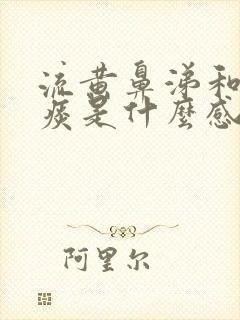 流黄鼻涕和
痰是什麼感
阿里尔